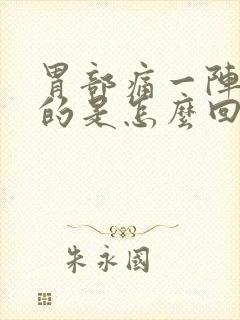 胃部痛一陣
的是怎麼回
朱永國